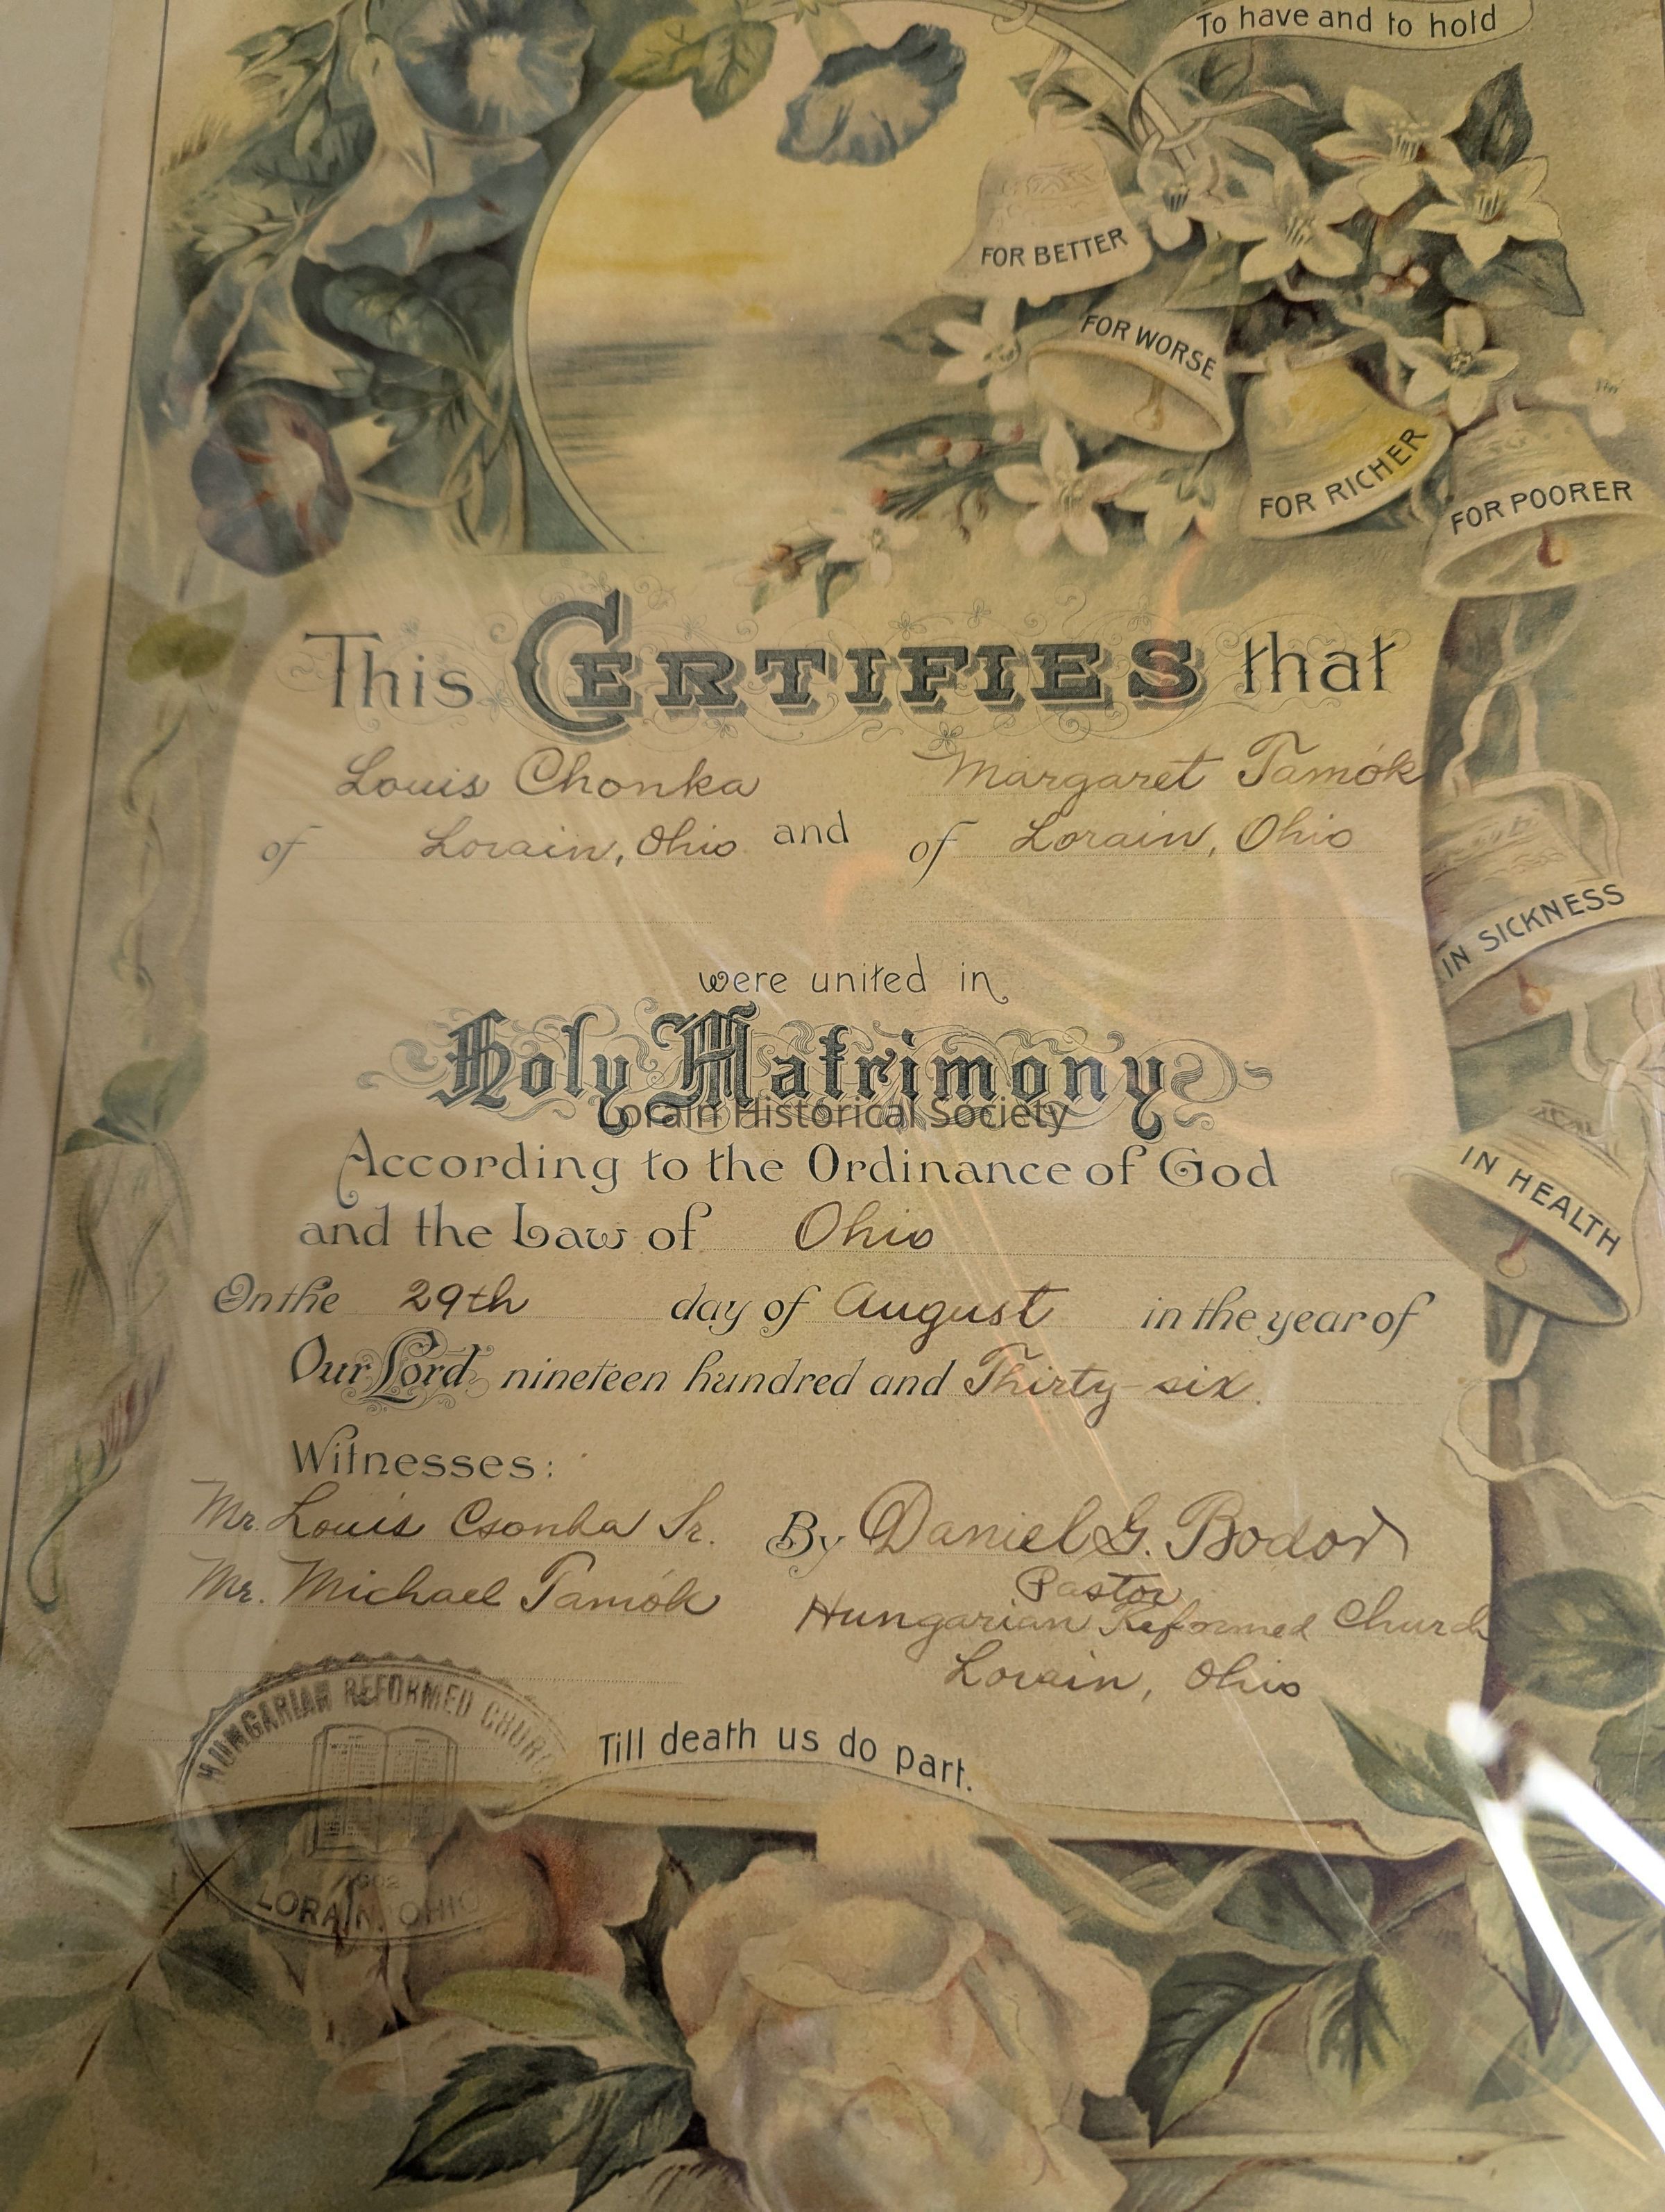 To have and to hold
FOR BETTER
FOR WORSE
FOR RICHER
FOR POORER
This CERTIFIES that
Louis Chonka Margaret Tamók
of Lorain, Ohio and of Lorain, Ohio
IN SICKNESS
were united in
Holy Matrimony
Lorain Historical Society
According to the Ordinance of God
IN HEALTH
and the Law of Ohio
On the 29th day of August in the year of
Our Lord nineteen hundred and Thirty-six.
Witnesses:
Mr. Louis Csonka Sr. By Daniel G. Bodor
Mr. Michael Tamók Pastor
Hungarian Reformed Church
Lorain, Ohio
HUNGARIAN REFORMED CHURCH
1902
LORAIN, OHIO
Till death us do part.